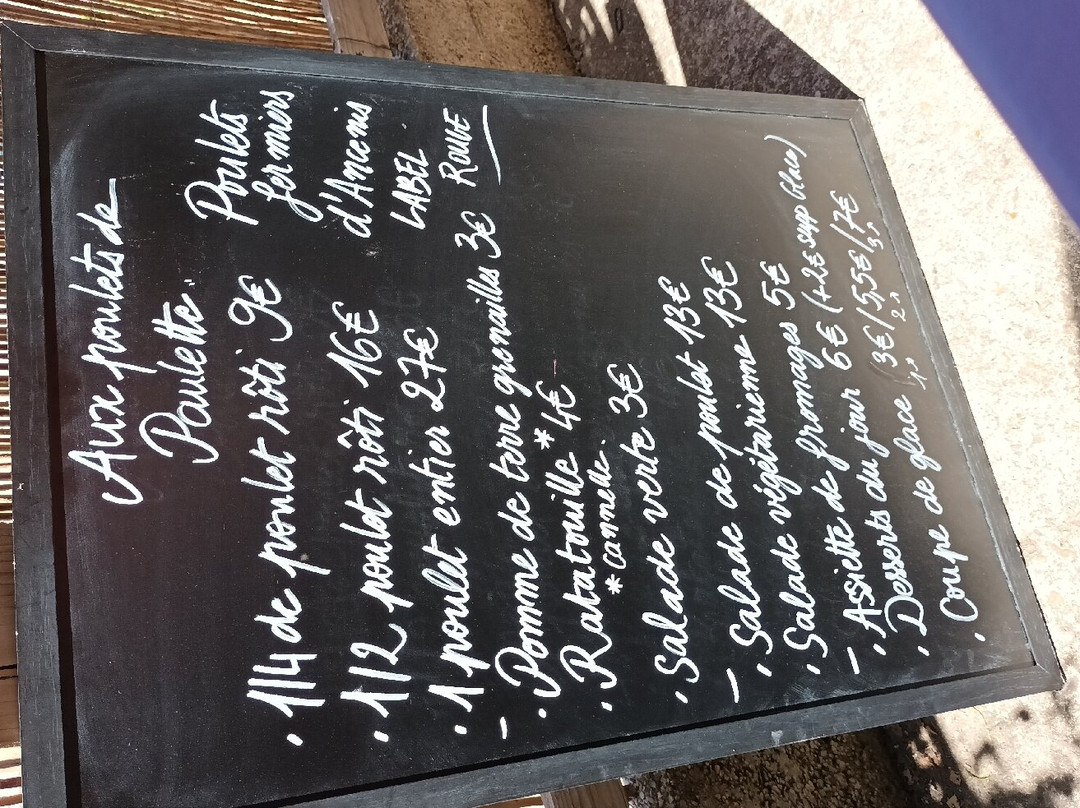 Aux poulets de
Paulette.
· 1/4 de poulet rôti 9€
· 1/2 poulet rôti 16€
· 1 poulet entier 27€
Poulets
fermiers
d'Ancenis
LABEL
ROUGE
–
· Pomme de terre grenailles 3€
· Ratatouille * 4€
* cannelle
· Salade verte 3€
–
· Salade de poulet 13€
· Salade végétarienne 13€
–
· Assiette de fromages 5€
· Desserts du jour 6€ (+2€ supp glaces)
· Coupe de glace (3€/5,5€/7€
1, 2, 3,